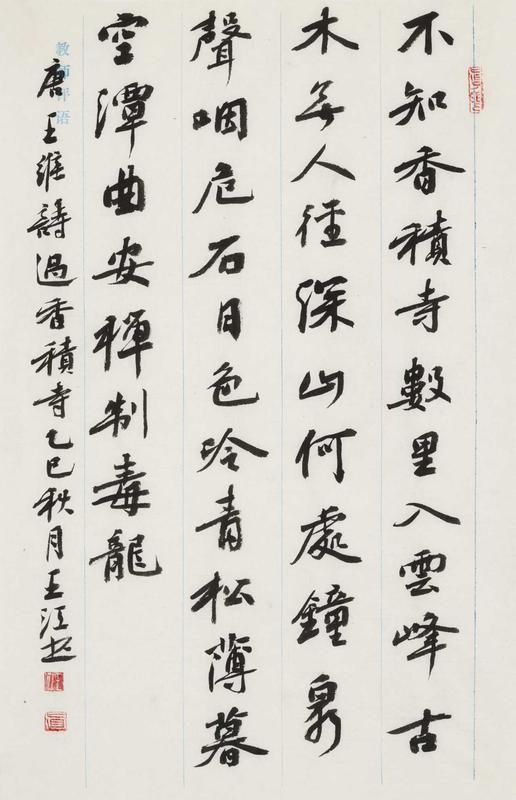 不知香積寺數里入雲峰古
木無人徑深山何處鐘泉
聲咽危石日色冷青松薄暮
空潭曲安禪制毒龍
唐王維詩過香積寺乙巳秋月王江书
教师评语